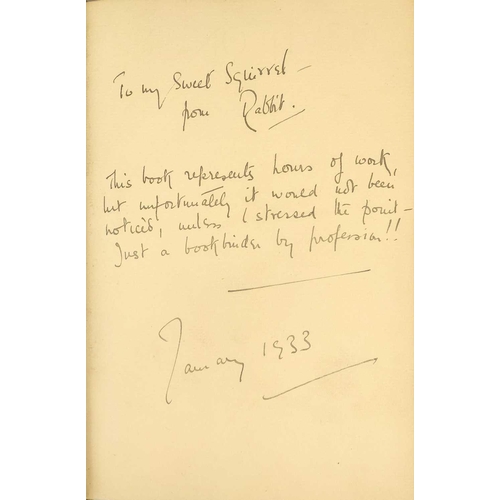 To my Sweet Squirrel —
from Rabbit.
This book represents hours of work,
but unfortunately it would not been
noticed, unless I stressed the point —
Just a bookbinder by profession!!
January 1933